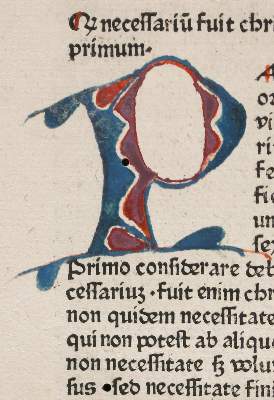 Q neceſſariū fuit chri
primum·
P
or
vi
ri
fe
fic
un
ſez
Primo conſiderare deb
ceſſariuꝫ ·fuit enim chr
non quidem neceſſitate
qui non poteſt ab aliqu
non neceſſitate ſꝫ volun
ſus ·sed neceſſitate fini